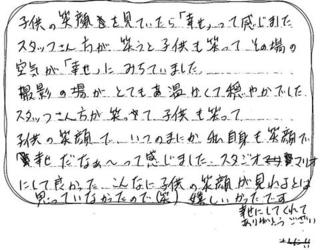 子供の笑顔を見ていたら「幸せ」って感じました
スタッフさん方が笑うと子供も笑って その場の
空気が「幸せ」にみちていました。
撮影の場がとても温かくて穏やかでした
スタッフさん方が笑わせて子供も笑って
子供の笑顔で いつのまにか私自身も笑顔で
幸せだなぁ〜って感じました。スタジオ
にして良かった こんなに子供の笑顔が見れるとは
思っていなかったので(笑) 嬉しかったです
幸せにしてくれて
ありがとうございい